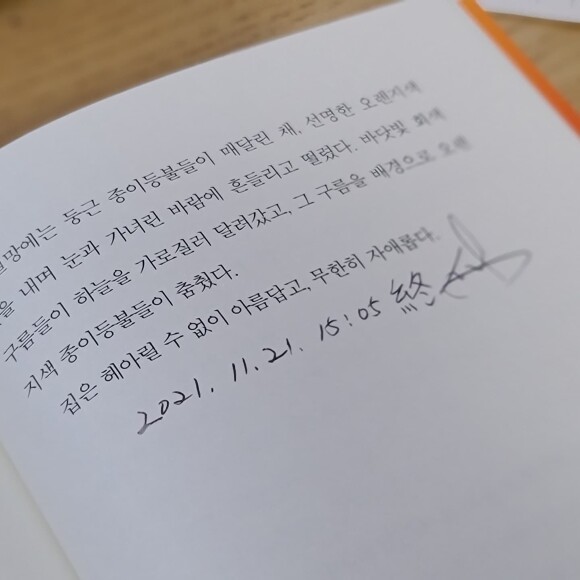 망에는 둥근 종이등불들이 매달린 채, 선명한 오렌지색
을 내며 눈과 가녀린 바람에 흔들리고 떨렸다. 바닷빛 회색
구름들이 하늘을 가로질러 달려갔고, 그 구름을 배경으로 오렌
지색 종이등불들이 춤췄다.
집은 헤아릴 수 없이 아름답고, 무한히 자애롭다.
2021. 11. 21. 15:05 終